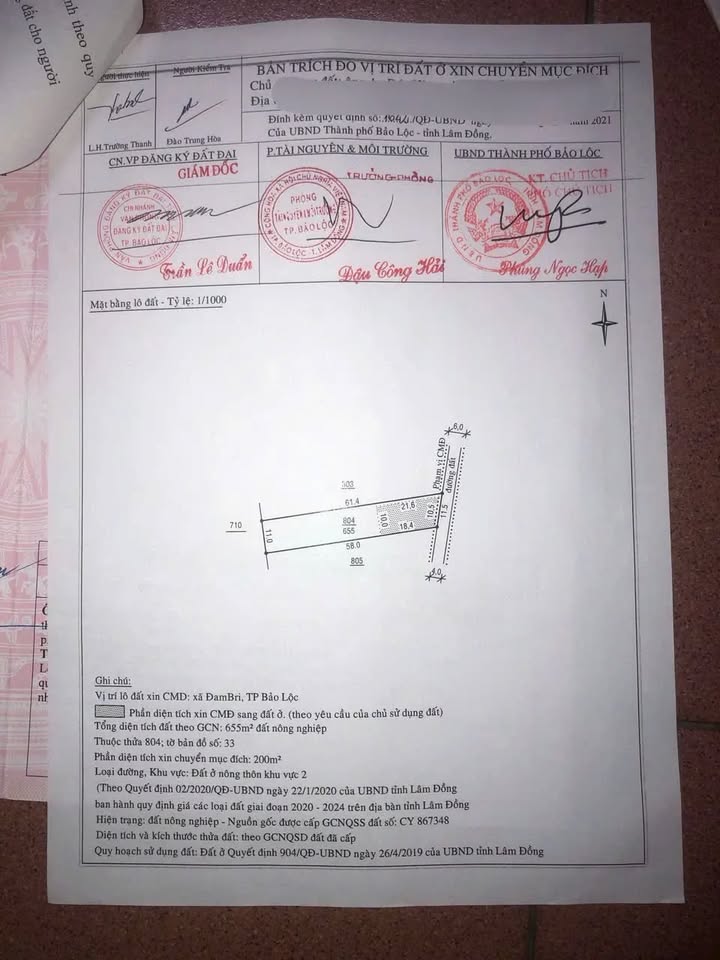 nh theo quy
đất cho người
Người thực hiện
Người Kiểm Tra
L.H.Trường Thanh
Đào Trung Hòa
BẢN TRÍCH ĐO VỊ TRÍ ĐẤT Ở XIN CHUYỂN MỤC ĐÍCH
Chủ
Địa
Đính kèm quyết định số: /QĐ-UBND ngày 2021
Của UBND Thành phố Bảo Lộc - tỉnh Lâm Đồng.
CN.VP ĐĂNG KÝ ĐẤT ĐAI
GIÁM ĐỐC
CHI NHÁNH
ĐĂNG KÝ ĐẤT ĐAI
TP BẢO LỘC
Trần Lê Duẩn
P.TÀI NGUYÊN & MÔI TRƯỜNG
TRƯỞNG PHÒNG
PHÒNG
TÀI NGUYÊN VÀ MÔI TRƯỜNG
TP.BẢO LỘC
Đậu Công Hải
UBND THÀNH PHỐ BẢO LỘC
KT. CHỦ TỊCH
PHÓ CHỦ TỊCH
Phùng Ngọc Hạp
Mặt bằng lô đất - Tỷ lệ: 1/1000
N
6,0
Phạm vi CMĐ
đường đất
303
61.4
21,6
710
11.0
804
655
10,0
10,5
11.5
18,4
58.0
805
4,0
Ghi chú:
Vị trí lô đất xin CMD: xã ĐamBri, TP Bảo Lộc
Phần diện tích xin CMĐ sang đất ở. (theo yêu cầu của chủ sử dụng đất)
Tổng diện tích đất theo GCN: 655m² đất nông nghiệp
Thuộc thửa 804; tờ bản đồ số: 33
Phần diện tích xin chuyển mục đích: 200m²
Loại đường, Khu vực: Đất ở nông thôn khu vực 2
(Theo Quyết định 02/2020/QĐ-UBND ngày 22/1/2020 của UBND tỉnh Lâm Đồng
ban hành quy định giá các loại đất giai đoạn 2020 - 2024 trên địa bàn tỉnh Lâm Đồng
Hiện trạng: đất nông nghiệp - Nguồn gốc được cấp GCNQSS đất số: CY 867348
Diện tích và kích thước thửa đất: theo GCNQSD đất đã cấp
Quy hoạch sử dụng đất: Đất ở Quyết định 904/QĐ-UBND ngày 26/4/2019 của UBND tỉnh Lâm Đồng